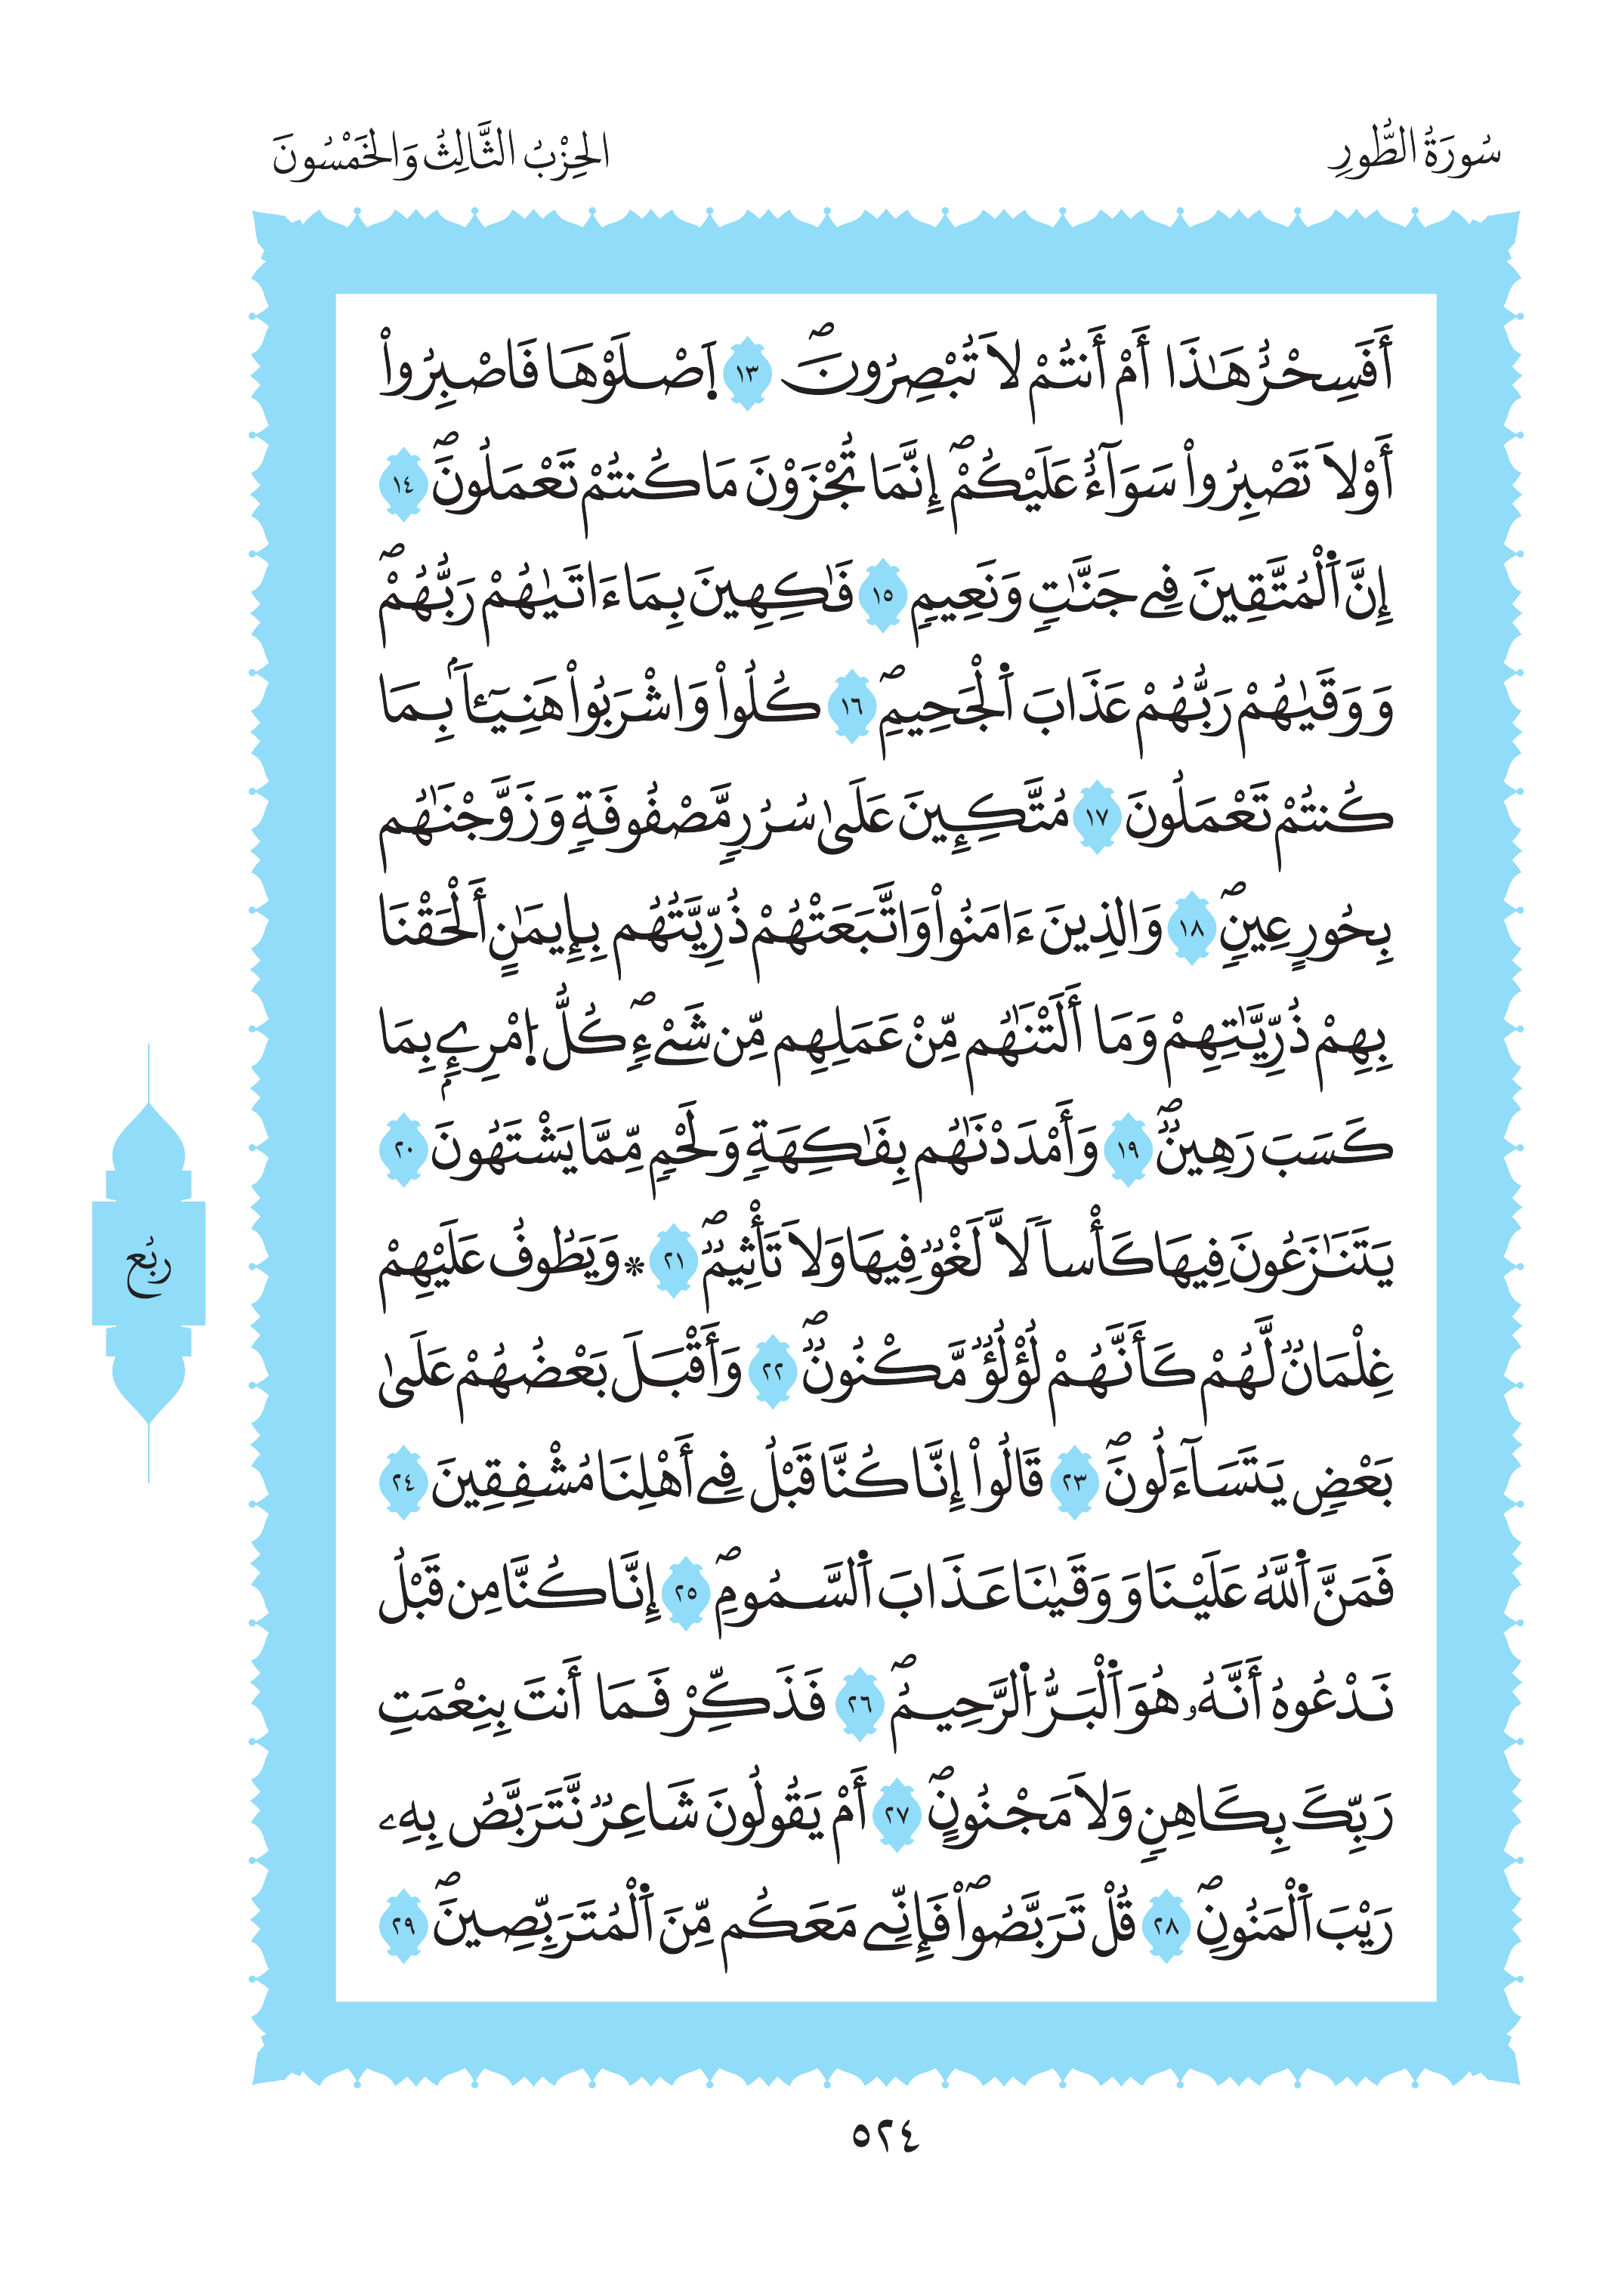 سُورَةُ الطُّورِ
الحِزْبُ الثَّالِثُ وَالخَمْسُونَ
أَفَسِحْرٌ هَٰذَا أَمْ أَنتُمْ لَا تُبْصِرُونَۖ ١٣ اَ۪صْلَوْهَا فَاصْبِرُواْ
أَوْ لَا تَصْبِرُواْ سَوَآءٌ عَلَيْكُمْۖ إِنَّمَا تُجْزَوْنَ مَا كُنتُمْ تَعْمَلُونَۖ ١٤
إِنَّ اَ۬لْمُتَّقِينَ فِے جَنَّٰتٖ وَنَعِيمٖ ١٥ فَٰكِهِينَ بِمَا ءَاتَيٰهُمْ رَبُّهُمْۖ
وَوَقَيٰهُمْ رَبُّهُمْ عَذَابَ اَ۬لْجَحِيمِۖ ١٦ كُلُواْ وَاشْرَبُواْ هَنِيٓـٔاَۢ بِمَا
كُنتُمْ تَعْمَلُونَ ١٧ مُتَّكِـِٕينَ عَلَىٰ سُرُرٖ مَّصْفُوفَةٖ وَزَوَّجْنَٰهُم
بِحُورٍ عِينٖۖ ١٨ وَالذِينَ ءَامَنُواْ وَاتَّبَعَتْهُمْ ذُرِّيَّتُهُم بِإِيمَٰنٍ أَلْحَقْنَا
بِهِمْ ذُرِّيَّٰتِهِمْ وَمَا أَلَتْنَٰهُم مِّنْ عَمَلِهِم مِّن شَےْءٖۖ كُلُّ اُ۪مْرِےِٕۢ بِمَا
كَسَبَ رَهِينٞۖ ١٩ وَأَمْدَدْنَٰهُم بِفَٰكِهَةٖ وَلَحْمٖ مِّمَّا يَشْتَهُونَ ٢٠
يَتَنَٰزَعُونَ فِيهَا كَأْساٗ لَّا لَغْوٞ فِيهَا وَلَا تَأْثِيمٞۖ ٢١ * وَيَطُوفُ عَلَيْهِمْ
غِلْمَانٞ لَّهُمْ كَأَنَّهُمْ لُؤْلُؤٞ مَّكْنُونٞۖ ٢٢ وَأَقْبَلَ بَعْضُهُمْ عَلَىٰ
بَعْضٖ يَتَسَآءَلُونَۖ ٢٣ قَالُواْ إِنَّا كُنَّا قَبْلُ فِے أَهْلِنَا مُشْفِقِينَ ٢٤
فَمَنَّ اَ۬للَّهُ عَلَيْنَا وَوَقَيٰنَا عَذَابَ اَ۬لسَّمُومِۖ ٢٥ إِنَّا كُنَّا مِن قَبْلُ
نَدْعُوهُ أَنَّهُۥ هُوَ اَ۬لْبَرُّ اُ۬لرَّحِيمُۖ ٢٦ فَذَكِّرْ فَمَا أَنتَ بِنِعْمَتِ
رَبِّكَ بِكَاهِنٖ وَلَا مَجْنُونٍۖ ٢٧ أَمْ يَقُولُونَ شَاعِرٞ نَّتَرَبَّصُ بِهِۦ
رَيْبَ اَ۬لْمَنُونِۖ ٢٨ قُلْ تَرَبَّصُواْۖ فَإِنِّے مَعَكُم مِّنَ اَ۬لْمُتَرَبِّصِينَۖ ٢٩
ربُع
٥٢٤